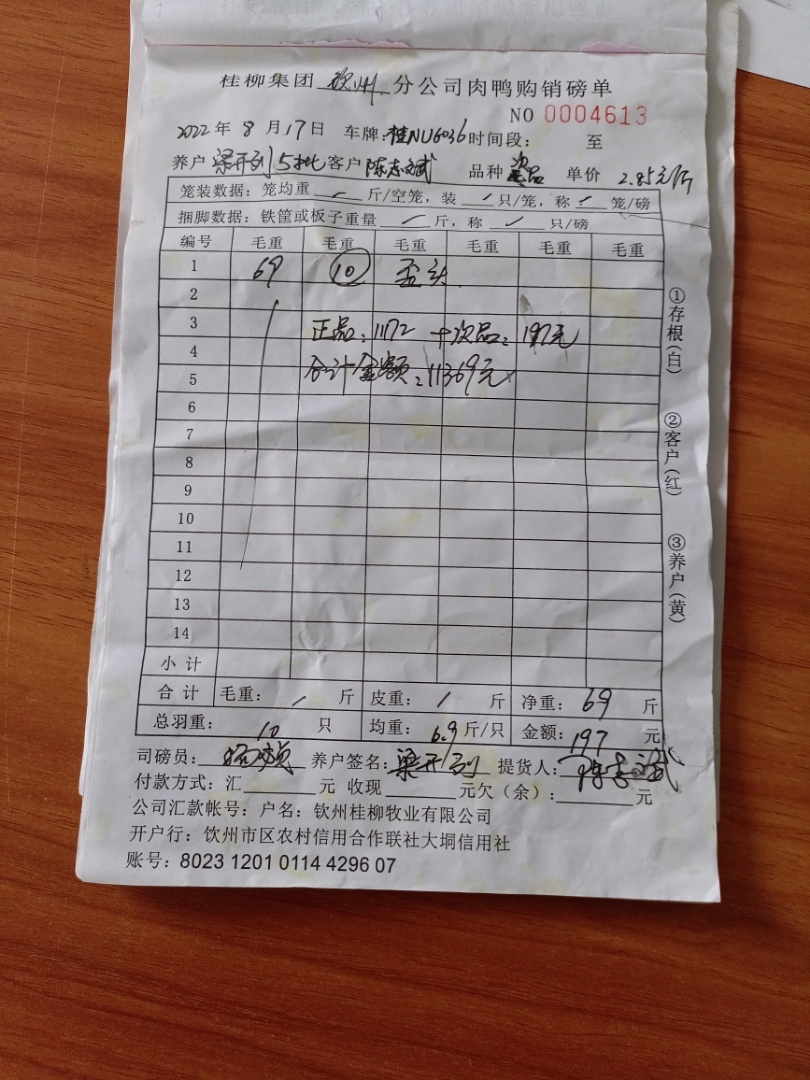 桂柳集团 钦州 分公司肉鸭购销磅单
NO 0004613
2022年 8 月 17日 车牌：桂NU6036 时间段： 至
养户 梁开列 5批 客户 陈志斌 品种 次品 单价 2.85元/斤
笼装数据：笼均重 / 斤/空笼，装 / 只/笼，称 / 笼/磅
捆脚数据：铁筐或板子重量 / 斤，称 / 只/磅
编号 毛重 毛重 毛重 毛重 毛重 毛重
1 69 10 歪头
2
3 正品：11172 +次品：197元
4
5 合计金额：11369元
6
7
8
9
10
11
12
13
14
小 计
合 计 毛重： / 斤 皮重： / 斤 净重：69 斤
总羽重： 10 只 均重：6.9 斤/只 金额：197 元
司磅员： 养户签名：梁开列 提货人：陈志斌
付款方式：汇 元 收现 元欠（余）： 元
公司汇款帐号：户名：钦州桂柳牧业有限公司
开户行：钦州市区农村信用合作联社大垌信用社
账号：8023 1201 0114 4296 07
①存根(白)
②客户(红)
③养户(黄)